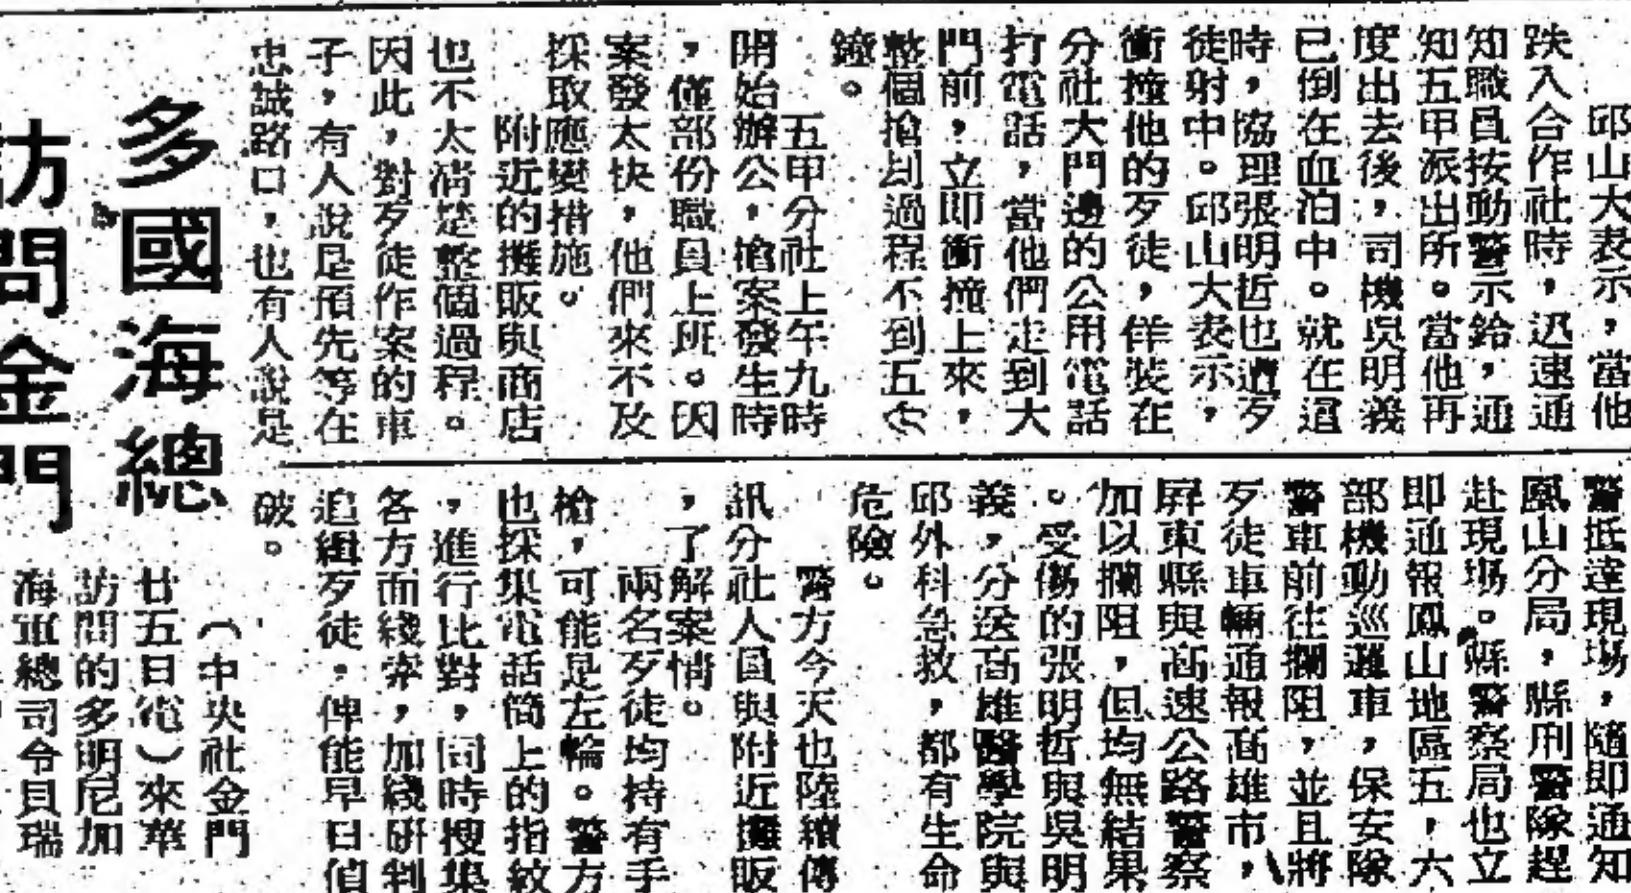 邱山大表示，當他
跌入合作社時，迅速通
知職員按動警示鈴，通
知五甲派出所。當他再
度出去後，司機吳明義
已倒在血泊中。就在這
時，協理張明哲也遭歹
徒射中。邱山大表示，
衝撞他的歹徒，佯裝在
分社大門邊的公用電話
打電話，當他們走到大
門前，立即衝撞上來，
整個搶刼過程不到五分
鐘。
五甲分社上午九時
開始辦公，搶案發生時
，僅部份職員上班。因
案發太快，他們來不及
採取應變措施。
附近的攤販與商店
也不太清楚整個過程。
因此，對歹徒作案的車
子，有人說是預先等在
忠誠路口，也有人說是
警抵達現場，隨即通知
鳳山分局，縣刑警隊趕
赴現場。縣警察局也立
即通報鳳山地區五，六
部機動巡邏車，保安隊
警車前往攔阻，並且將
歹徒車輛通報高雄市，
屏東縣與高速公路警察
加以攔阻，但均無結果
。受傷的張明哲與吳明
義，分送高雄醫學院與
邱外科急救，都有生命
危險。
警方今天也陸續傳
訊分社人員與附近攤販
，了解案情。
兩名歹徒均持有手
槍，可能是左輪。警方
也採集電話筒上的指紋
，進行比對，同時搜集
各方面綫索，加綫研判
追緝歹徒。俾能早日偵
破。
多國海總
訪問金門
（中央社金門
廿五日電）來華
訪問的多明尼加
海軍總司令貝瑞